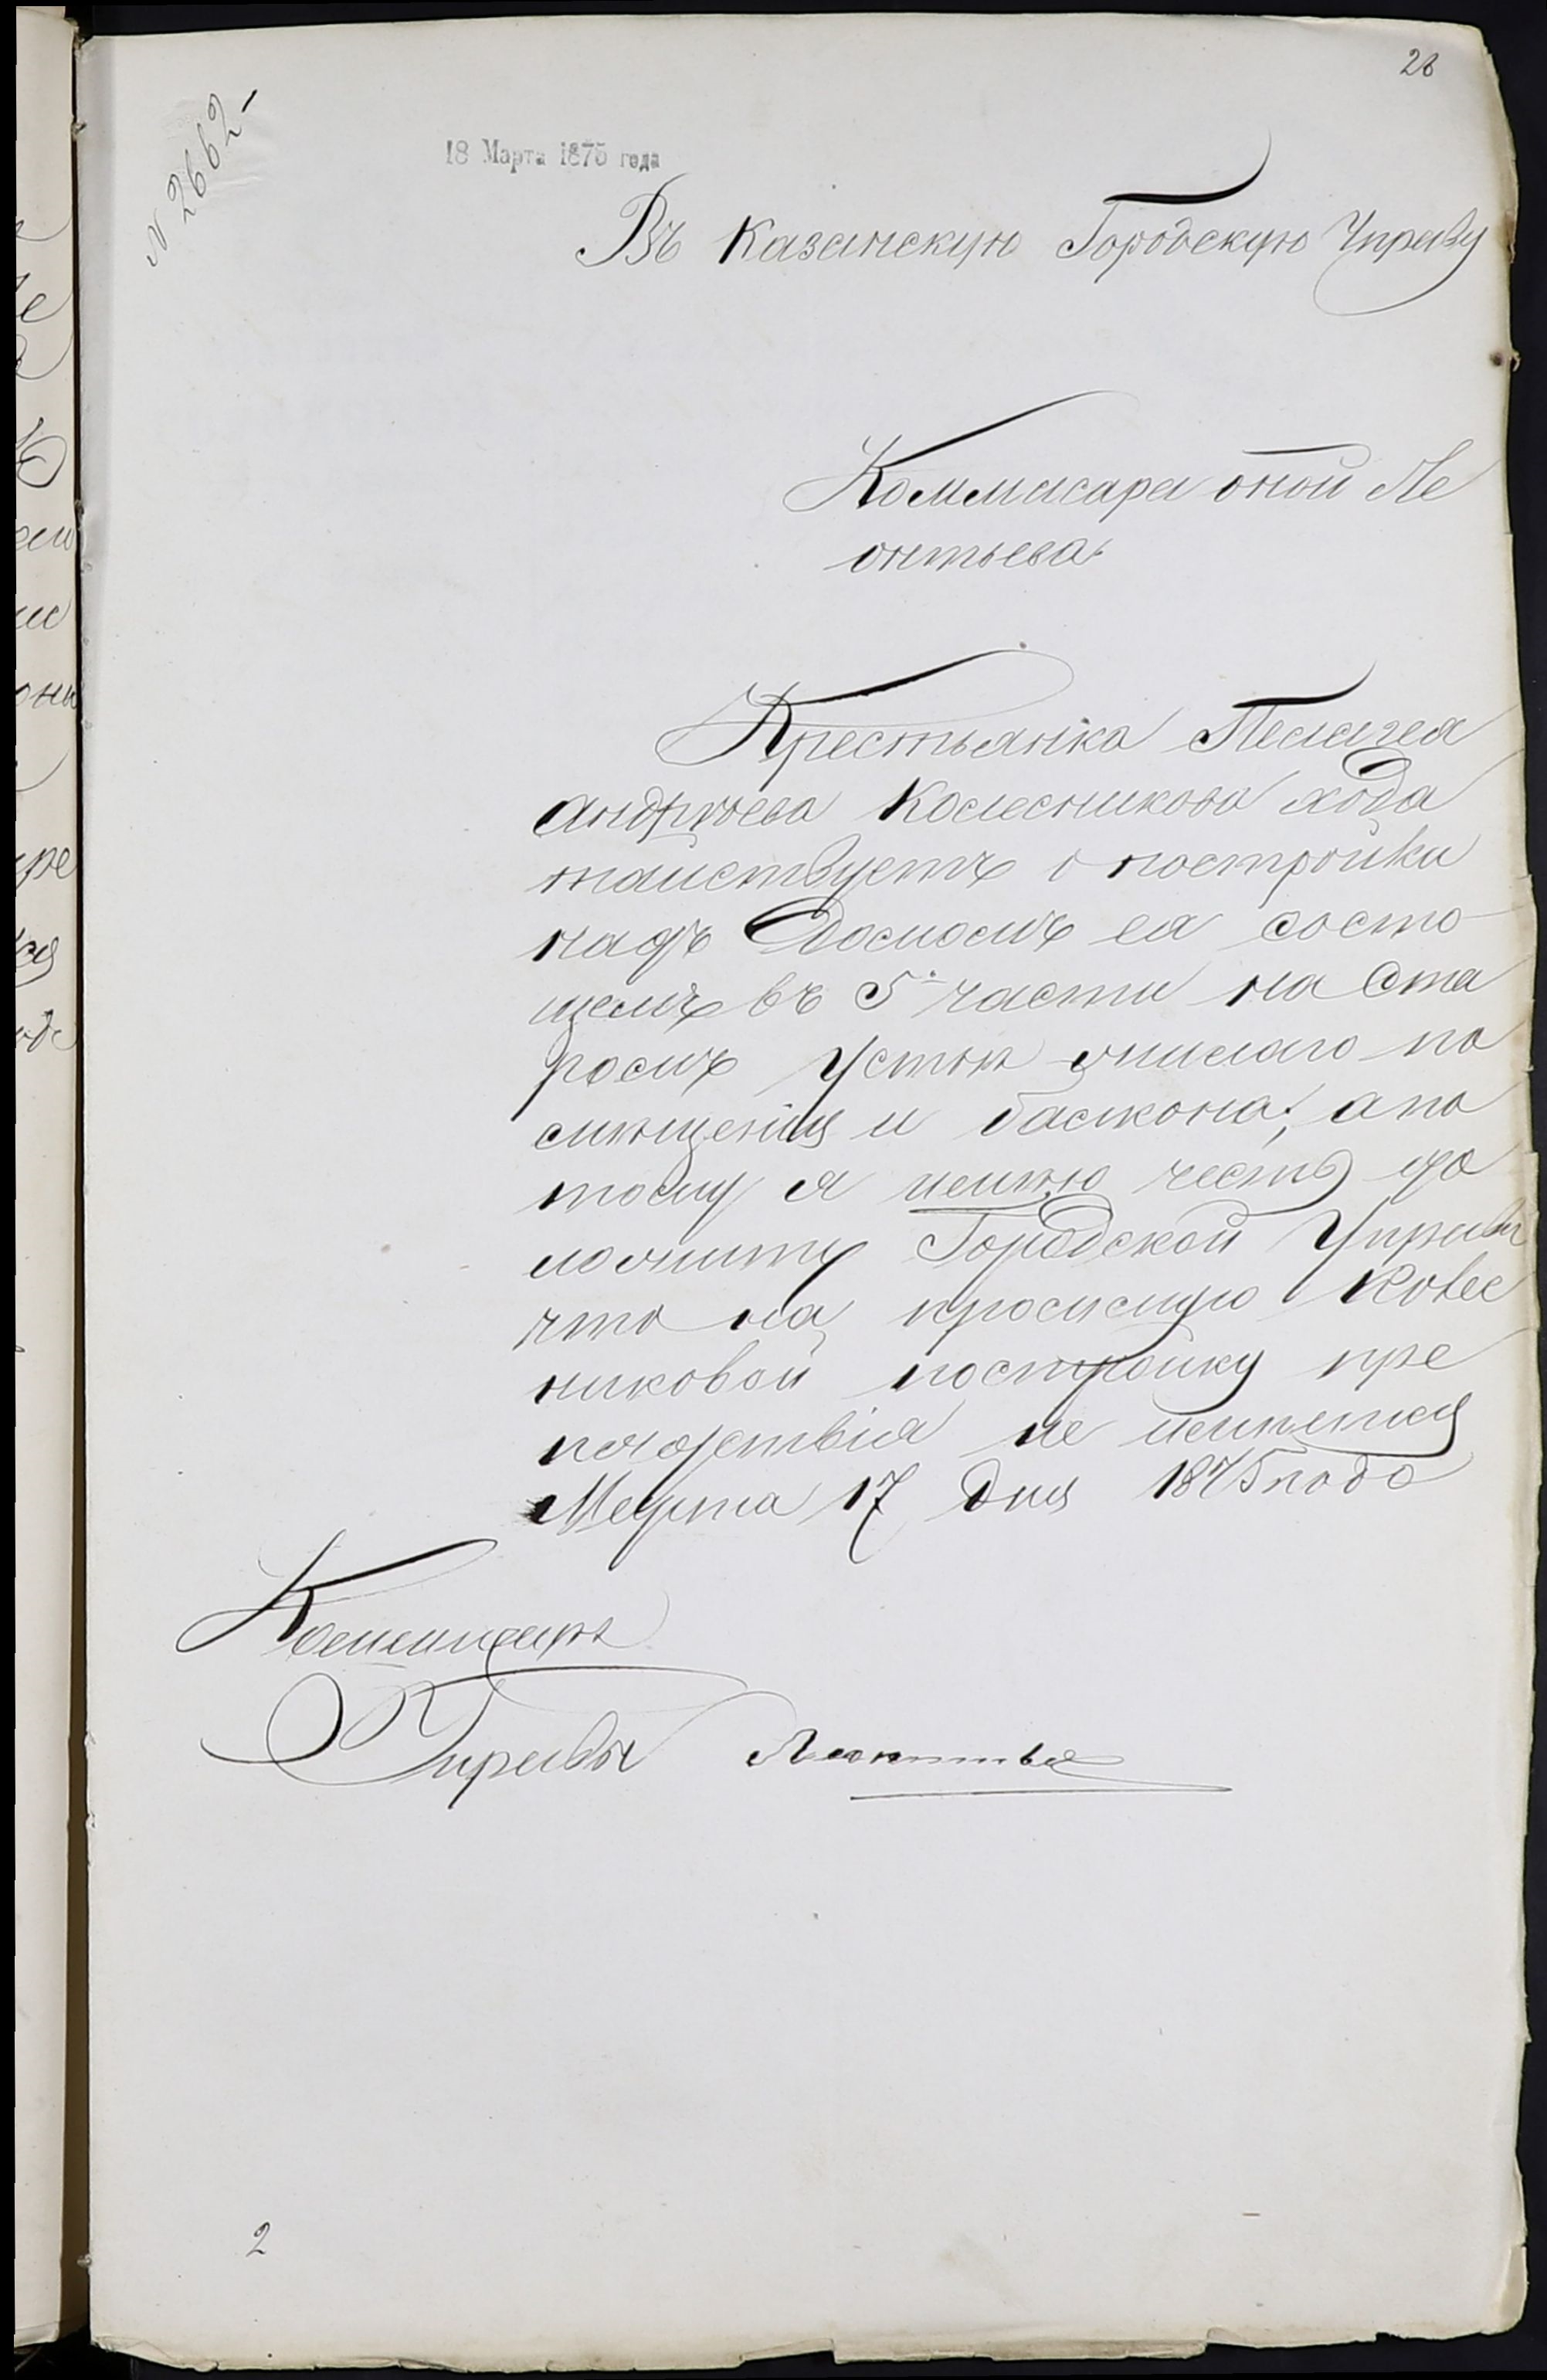 28
N 2662
18 Марта 1875 года
Въ Казанскую Городскую Управу
Коммисара оной Ле
онтьева
Крестьянка Пелагея
Андреева Колесникова хода
тайствуетъ о постройки
надъ домомъ ея состо
щемъ въ 5 части на Ста
ромъ Устьѣ жилаго по
мѣщенія и балкона, а по
тому я имѣю честь до
ложить Городской Управѣ
что на просимую Колес
никовой постройку пре
пядствія не имѣется
Марта 17 дня 1875 года
Коммисаръ
Управы Леонтьев
2